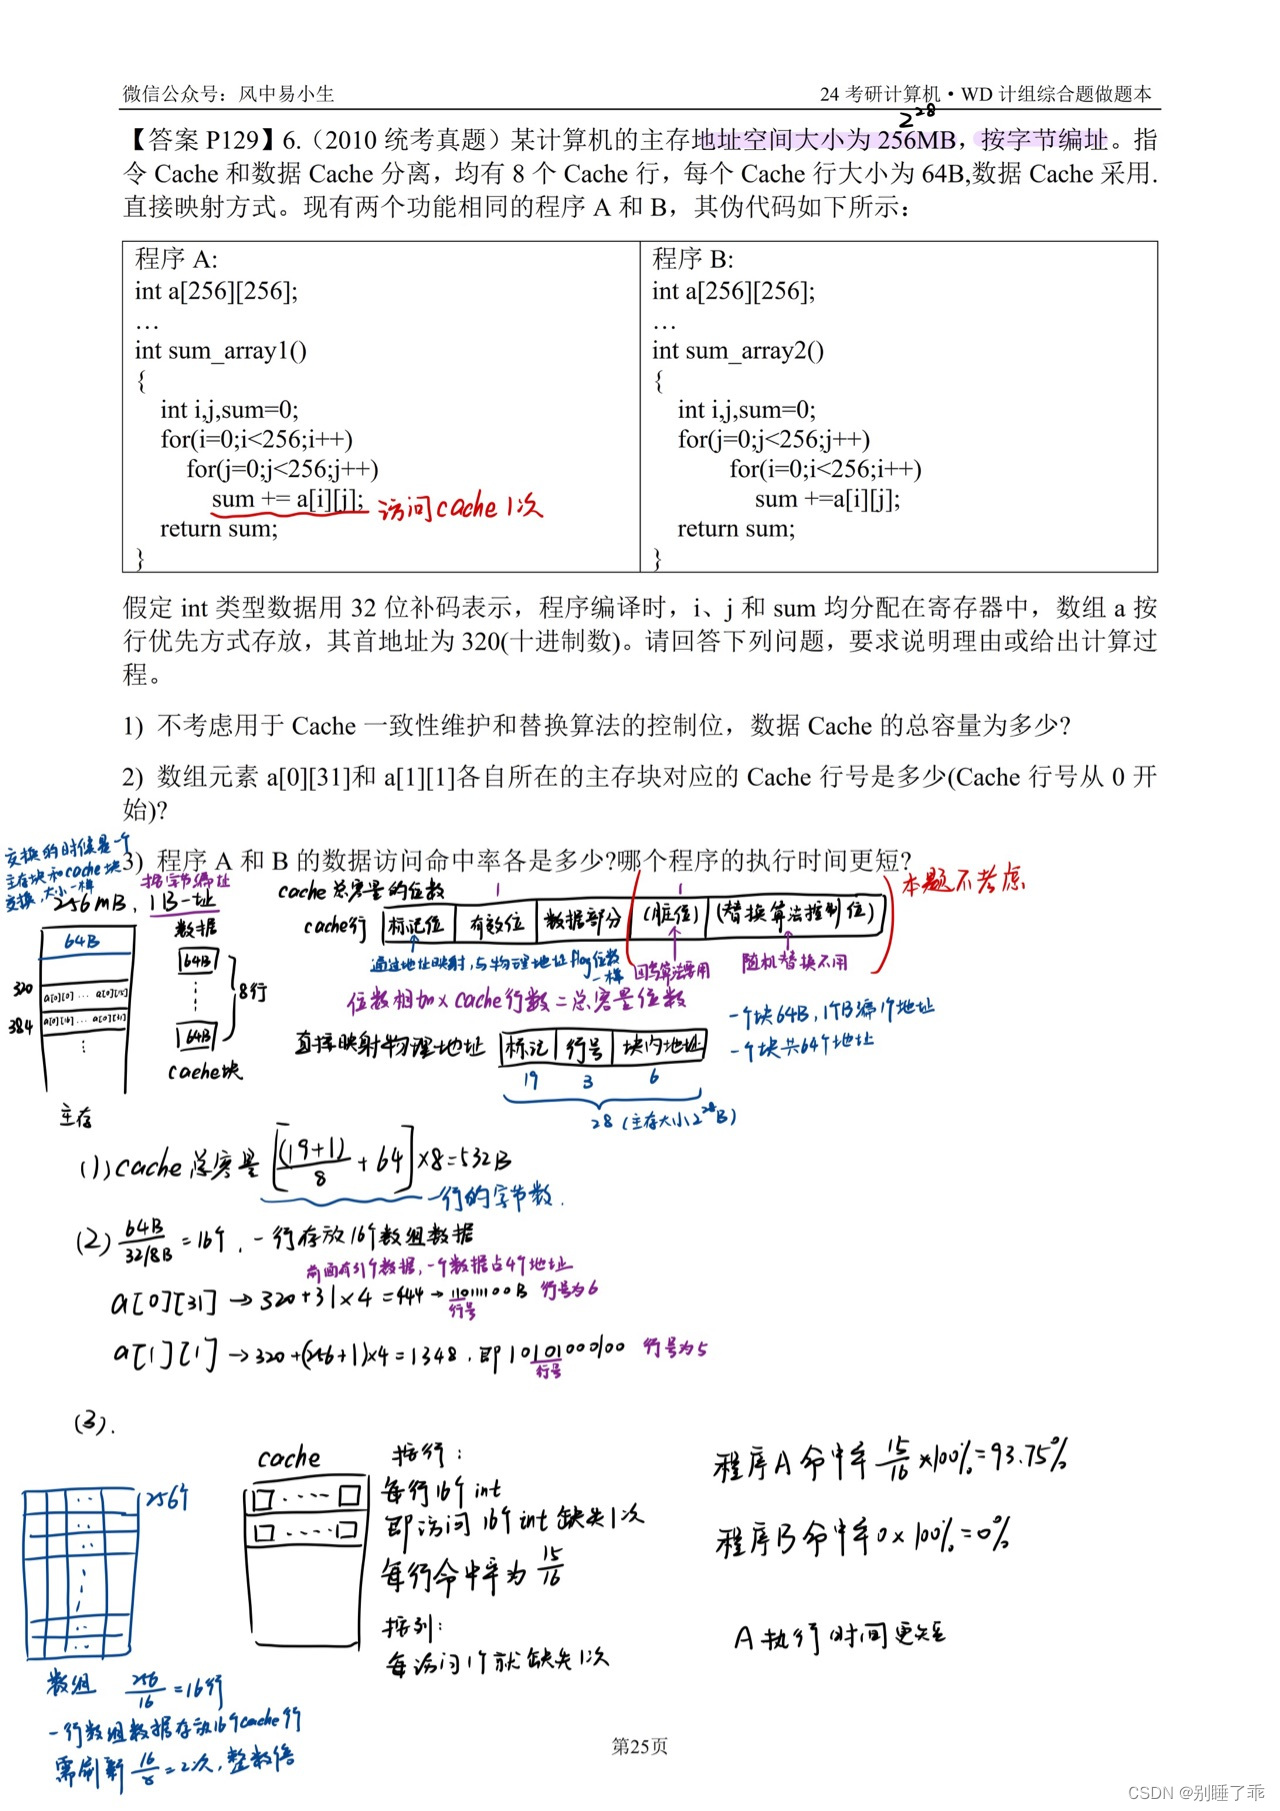 微信公众号：风中易小生
24 考研计算机·WD 计组综合题做题本
2^28
【答案 P129】6.（2010 统考真题）某计算机的主存地址空间大小为 256MB，按字节编址。指
令 Cache 和数据 Cache 分离，均有 8 个 Cache 行，每个 Cache 行大小为 64B,数据 Cache 采用.
直接映射方式。现有两个功能相同的程序 A 和 B，其伪代码如下所示：
程序 A:
int a[256][256];
…
int sum_array1()
{
int i,j,sum=0;
for(i=0;i<256;i++)
for(j=0;j<256;j++)
sum += a[i][j];
访问cache 1次
return sum;
}
程序 B:
int a[256][256];
…
int sum_array2()
{
int i,j,sum=0;
for(j=0;j<256;j++)
for(i=0;i<256;i++)
sum +=a[i][j];
return sum;
}
假定 int 类型数据用 32 位补码表示，程序编译时，i、j 和 sum 均分配在寄存器中，数组 a 按
行优先方式存放，其首地址为 320(十进制数)。请回答下列问题，要求说明理由或给出计算过
程。
1) 不考虑用于 Cache 一致性维护和替换算法的控制位，数据 Cache 的总容量为多少?
2) 数组元素 a[0][31]和 a[1][1]各自所在的主存块对应的 Cache 行号是多少(Cache 行号从 0 开
始)?
3) 程序 A 和 B 的数据访问命中率各是多少?哪个程序的执行时间更短?
交换的时候是一个
主存块和cache块
交换，大小一样
按字节编址
256mB，1B一址
64B
320
a[0][0] ... a[0][15]
384
a[0][16] ... a[0][31]
主存
数据
64B
8行
64B
cache块
cache总容量的位数
1
1
本题不考虑
cache行
标记位
有效位
数据部分
(脏位)
(替换算法控制位)
通过地址映射，与物理地址flag位数一样
回写算法要用
随机替换不用
位数相加×cache行数=总容量位数
一个块64B，1个B编1个地址
一个块共64个地址
直接映射物理地址
标记
行号
块内地址
19
3
6
28 (主存大小2^28B)
(1) cache总容量 [(19+1)/8 + 64]×8=532B
一行的字节数.
(2) 64B/32/8B = 16个，一行存放16个数组数据
前面有31个数据，一个数据占4个地址
a[0][31] → 320+31×4=444→110111100B 行号为6
行号
a[1][1] →320+(256+1)×4=1348，即10101000100 行号为5
行号
(3).
256个
数组
256/16 =16行
一行数组数据存放16个cache行
需刷新 16/8 =2次，整数倍
cache
按行：
每行16个int
即访问16个int缺失1次
每行命中率为 15/16
按列：
每访问1个就缺失1次
程序A命中率 15/16 ×100%=93.75%
程序B命中率 0×100%=0%
A执行时间更短
第25页
CSDN @别睡了乖